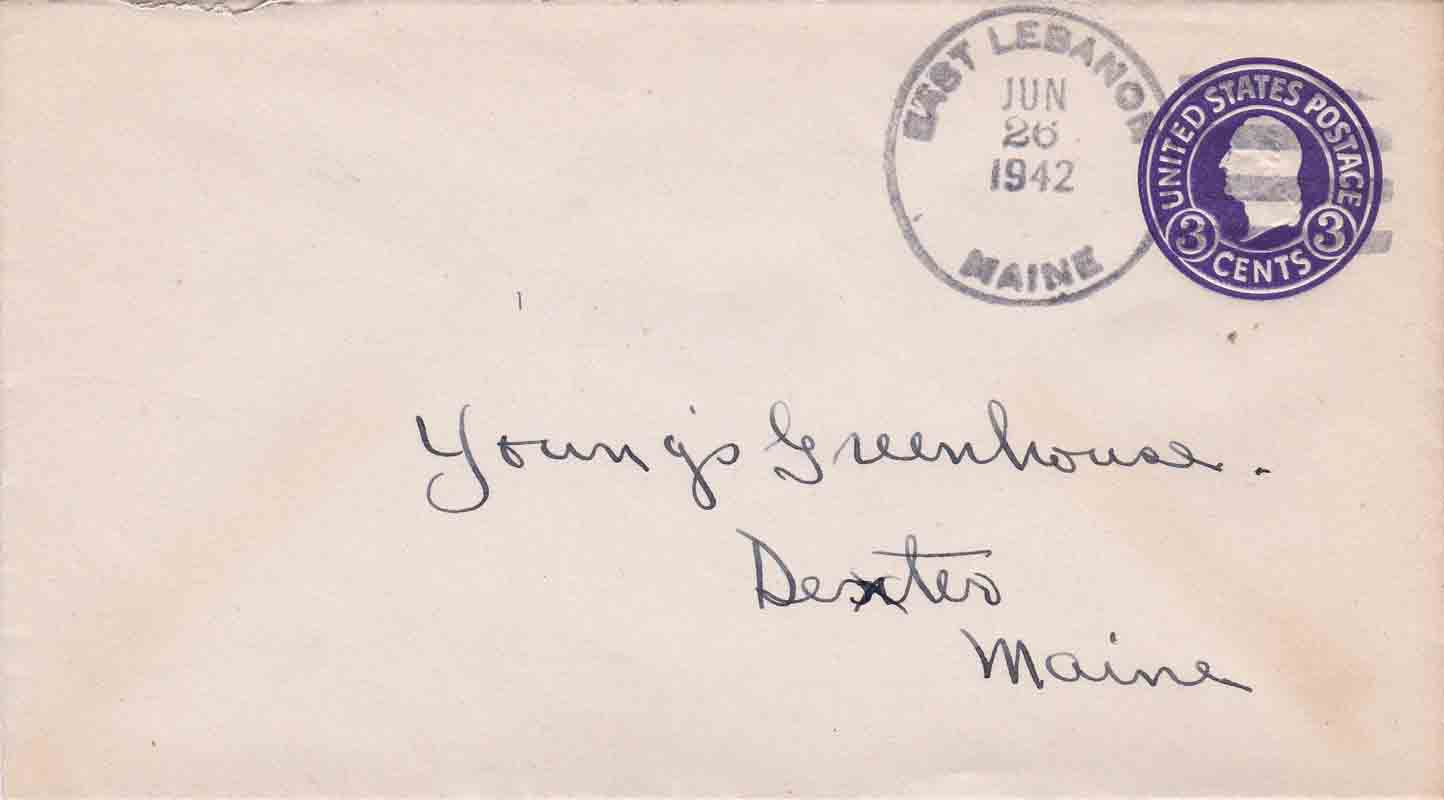 EAST LEBANON
JUN
26
1942
MAINE
UNITED STATES POSTAGE
3 3
CENTS
Young's Greenhouse.
Dexter
Maine